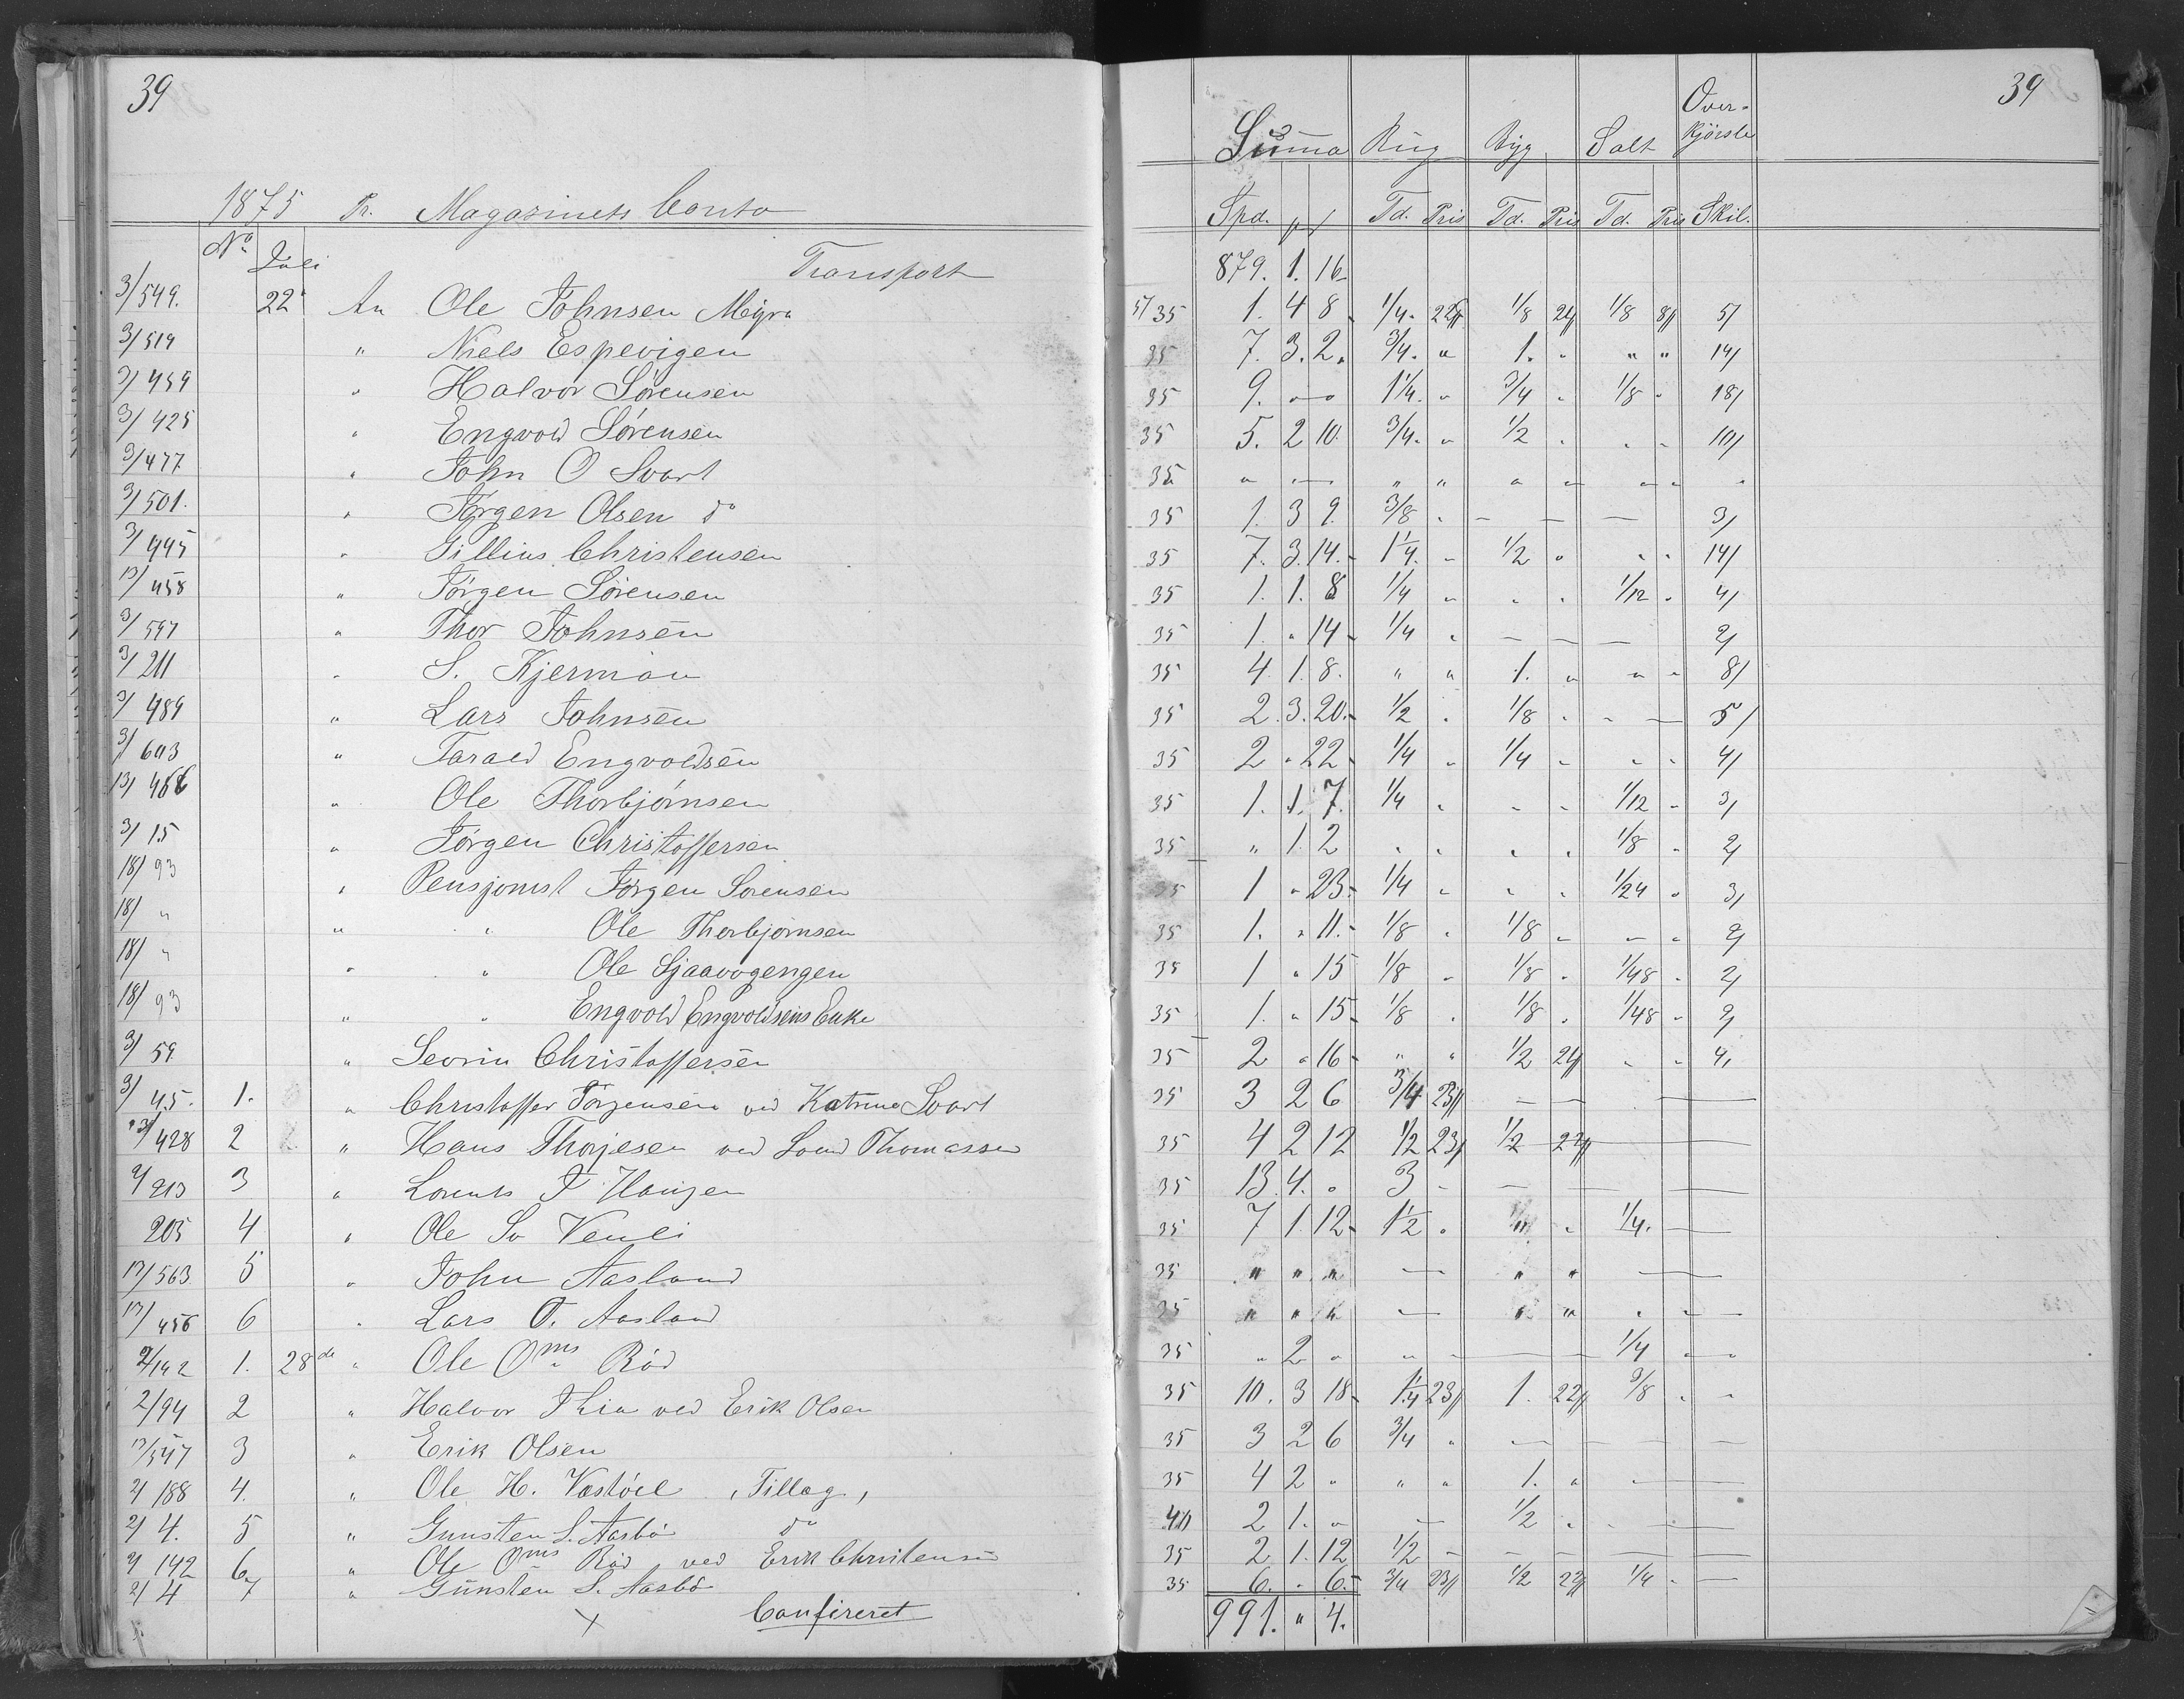 39
1875 Pr. Magazinets Conto
No. Juli Transport
3/549. 22 An Ole Johnsen Myra
3/519 " Niels Espevigen
3/459 " Halvor Sörensen
3/425 " Engvold Sörensen
3/477 " John O Svart
3/501. " Jörgen Olsen do
3/445 " Gillius Christensen
13/458 " Jörgen Sörensen
3/597 " Thor Johnsen
3/211 " S. Kjerman
3/489 " Lars Johnsen
3/643 " Tarald Engvoldsen
13/466 " Ole Thorbjörnsen
3/15 " Jörgen Christoffersen
18/93 " Pensjonist Jörgen Sörensen
18/ " " " Ole Thorbjörnsen
18/ " " " Ole Sjaavogengen
18/93 " " Engvold Engvoldsens Enke
3/59 " Sevrin Christoffersen
3/45. 1. " Christoffer Jörgensen ved Katrine Svart
13/428 2 " Hans Thorjesen ved Thomassen
2/213 3 " Lorents
205 4 " Ole Sv Venli
13/563 5 " John Aasland
13/456 6 " Lars O. Aasland
2/142 1. 28de " Ole Oms Röd
2/94 2 " Halvor ved Erik Olsen
13/547 3 " Erik Olsen
2/188 4. " Ole H. Vastöel, Tillæg,
2/4. 5 " Gunsten S. Aasbö do
2/142 6 " Ole Oms Röd, ved Erik Christensen
2/4 7 " Gunsten S. Aasbö
Confireret
39
Summa Rug Byg Salt Over-kjörsle
Spd. Td. Pris Td. Pris Td. Pris Skil.
879. 1. 16
5/35 1. 4 8 1/4 22 1/8 24 1/8 8 5/
35 7. 3. 2. 3/4. " 1. " " " 14/
35 9. " " 1 1/4. " 3/4 " 1/8 " 18/
35 5. 2 10. 3/4. " 1/2 " " " 10/
35 " " " " " " " "
35 1. 3 9. 3/8 " — — — 3/
35 7. 3. 14. 1 1/4. " 1/2 " " " 14/
35 1. 1. 8 1/4 " " " 1/12 " 4/
35 1. " 14 1/4 " — — — 2/
35 4. 1. 8. " " 1. " " " 8/
35 2. 3. 20. 1/2 " 1/8 " " — 5/
35 2 " 22 1/4 " 1/4 " " " 4/
35 1. 1. 7. 1/4 " " " 1/12 " 3/
35 " 1 2 " " " " 1/8 " 2/
35 1 " 23 1/4 " " " 1/24 " 3/
35 1. " 11. 1/8 " 1/8 " " " 2/
35 1 " 15 1/8 " 1/8 " 1/48 " 2/
35 1. " 15 1/8 " 1/8 " 1/48 " 2/
35 2 " 16 " " 1/2 24 " " 4.
35 3 2 6 3/4 23 — — —
35 4 2 12 1/2 23 1/2 22 —
35 13. 4. " 3 " — — —
35 7 1. 12 1 1/2 " " " 1/4. —
35 " " " — " " —
35 " " " — " " " —
35 " 2 " " " — — 1/4 " "
35 10. 3 18 1 1/4 23 1. 22 3/8 " "
35 3 2 6 3/4 " — — — —
35 4 2 " " " 1. " " —
40 2 1. " — 1/2 " " —
35 2 1. 12 1/2 — — — — —
35 6. " 6. 3/4 23 1/2 22 1/4 " —
991. " 4.